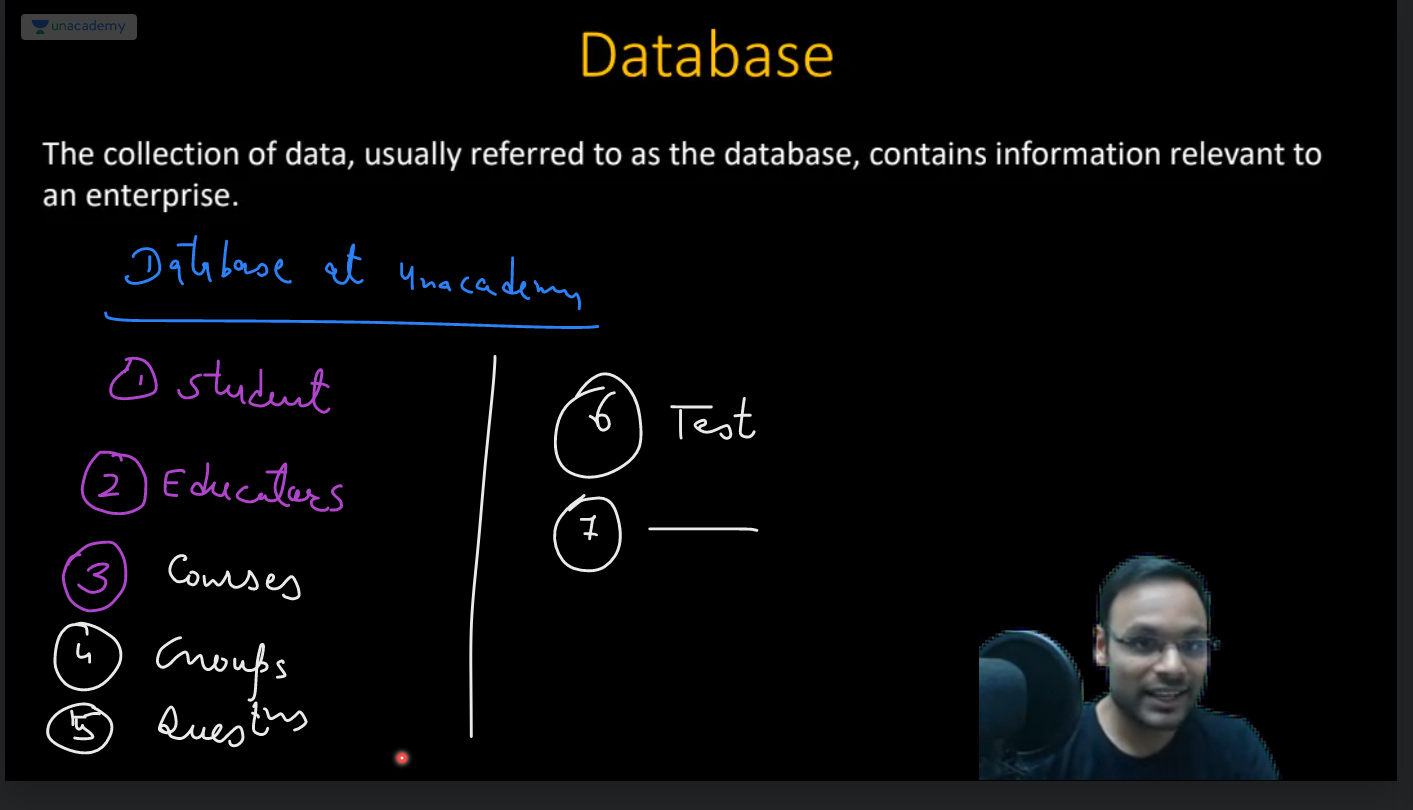 unacademy
Database
The collection of data, usually referred to as the database, contains information relevant to
an enterprise.
Database at unacademy
1 Student
2 Educators
3 Courses
4 Groups
5 Questins
6 Test
7